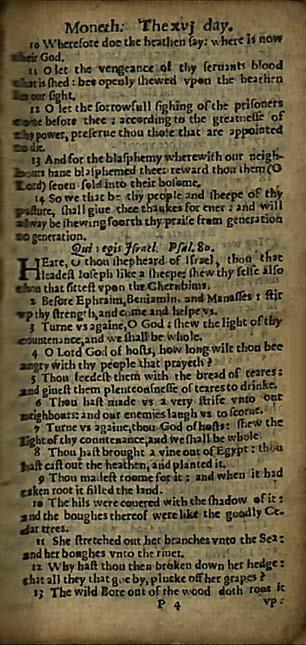 Moneth. The xvj day.
10 Wherefore doe the heathen say: where is now
their God.
11 O let the vengeance of thy seruants blood
that is shed: bee openly shewed vpon the heathen
in our sight.
12 O let the sorrowfull sighing of the prisoners
come before thee: according to the greatnesse of
thy power, preserue thou those that are appointed
to die.
13 And for the blasphemy wherewith our neigh-
bours haue blasphemed thee: reward thou them (O
Lord) seuen fold into their bosome.
14 So we that be thy people and sheepe of thy
pasture, shall giue thee thankes for euer: and will
alway be shewing foorth thy praise from generation
to generation.
Qui regis Israel. Psal. 80.
HEare, O thou shepheard of Israel, thou that
leadest Ioseph like a sheepe: shew thy selfe also
thou that sittest vpon the Cherubims.
2 Before Ephraim, Beniamin, and Manasses: stir
vp thy strength, and come and helpe vs.
3 Turne vs againe, O God: shew the light of thy
countenance, and we shall be whole.
4 O Lord God of hosts, how long wilt thou bee
angry with thy people that prayeth?
5 Thou feedest them with the bread of teares:
and giuest them plenteousnesse of teares to drinke.
6 Thou hast made vs a very strife vnto our
neighbours: and our enemies laugh vs to scorne.
7 Turne vs againe, thou God of hosts: shew the
light of thy countenance, and we shall be whole.
8 Thou hast brought a vine out of Egypt: thou
hast cast out the heathen, and planted it.
9 Thou madest roome for it: and when it had
taken root it filled the land.
10 The hils were couered with the shadow of it:
and the boughes thereof were like the goodly Ce-
dar trees.
11 She stretched out her branches vnto the Sea:
and her boughes vnto the riuer.
12 Why hast thou then broken down her hedge:
that all they that goe by, plucke off her grapes?
13 The wild Bore out of the wood doth root it
P 4 vp: